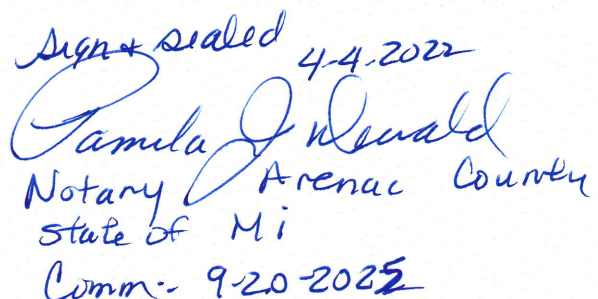 sign + sealed 4-4-2022
Pamela J Dewald
Notary Arenac County
State of Mi
Comm.- 9-20-2025